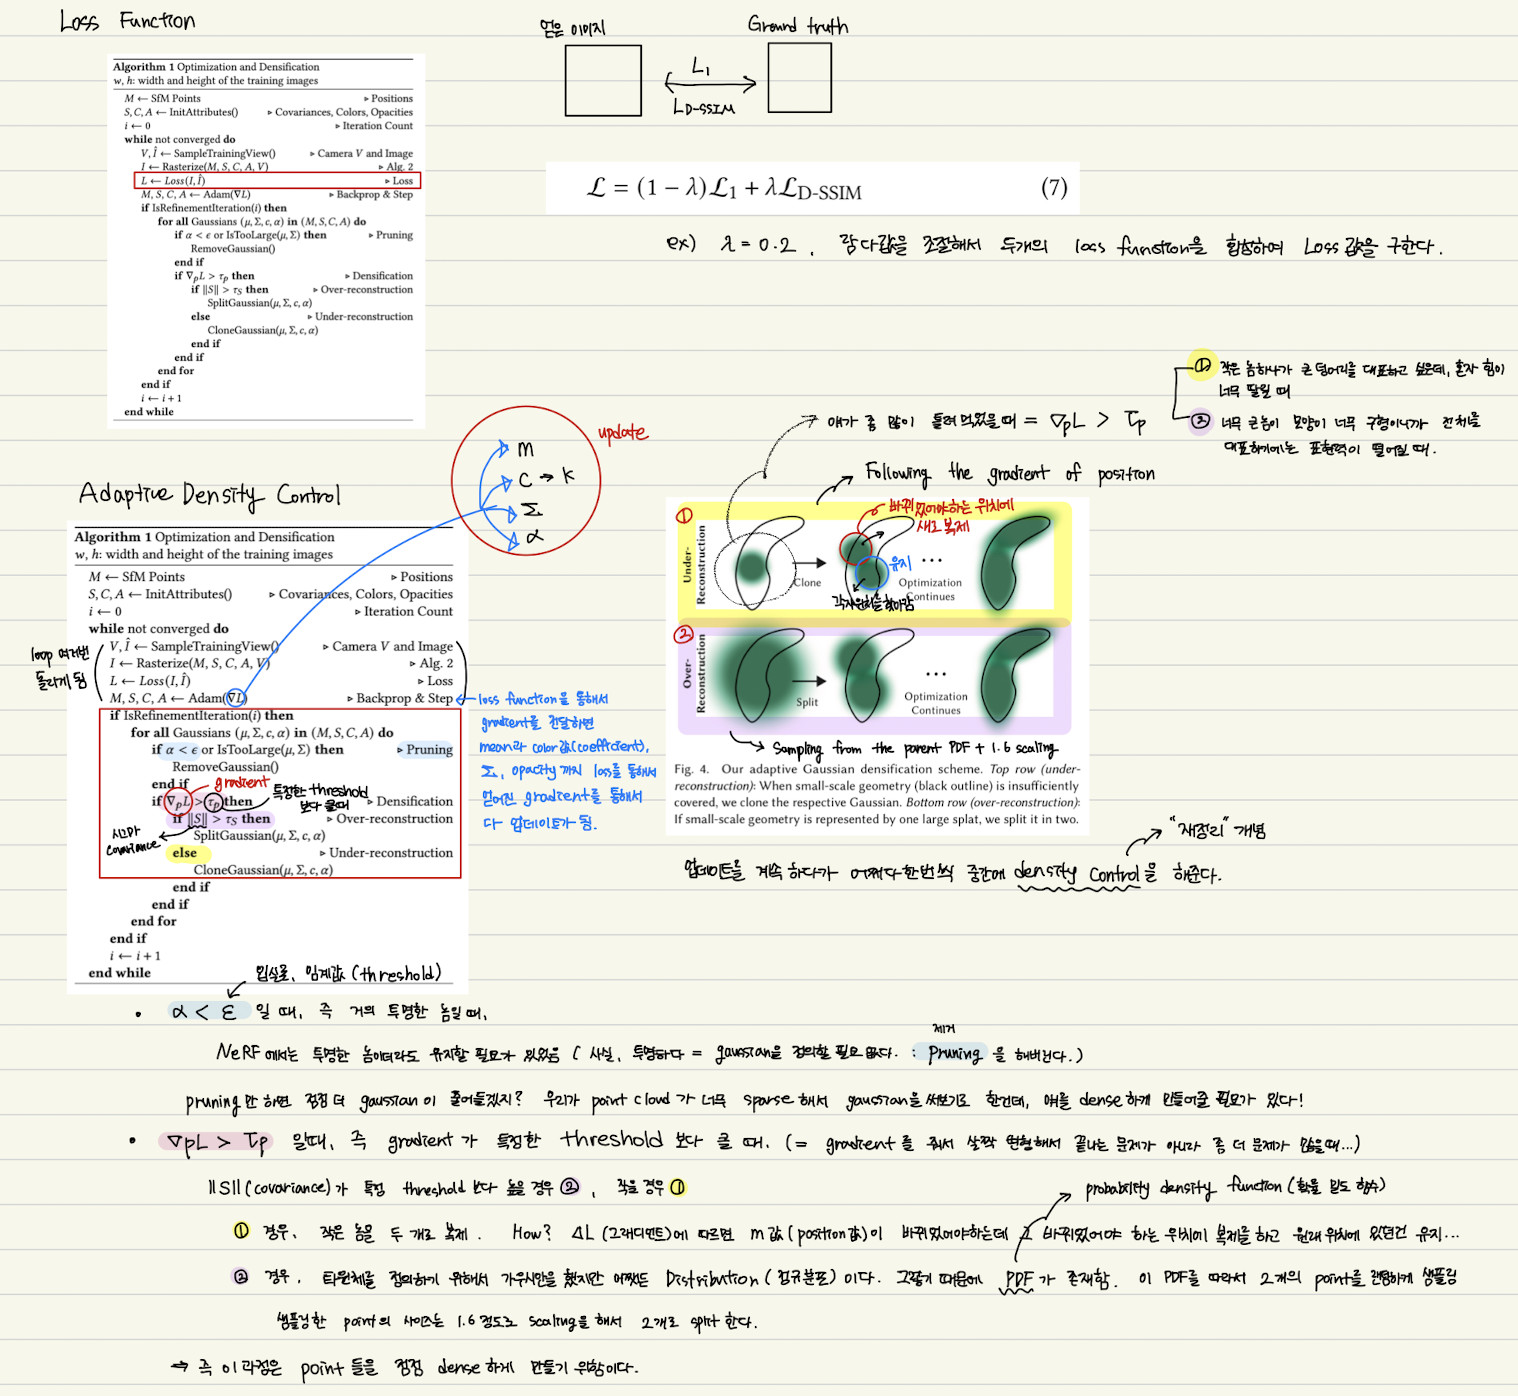 Loss Function
Algorithm 1 Optimization and Densification
w, h: width and height of the training images
M ← SfM Points ▹ Positions
S, C, A ← InitAttributes() ▹ Covariances, Colors, Opacities
i ← 0 ▹ Iteration Count
while not converged do
V, Î ← SampleTrainingView() ▹ Camera V and Image
I ← Rasterize(M, S, C, A, V) ▹ Alg. 2
L ← Loss(I, Î) ▹ Loss
M, S, C, A ← Adam(∇L) ▹ Backprop & Step
if IsRefinementIteration(i) then
for all Gaussians (μ, Σ, c, α) in (M, S, C, A) do
if α < ϵ or IsTooLarge(μ, Σ) then ▹ Pruning
RemoveGaussian()
end if
if ∇pL > τp then ▹ Densification
if ‖S‖ > τS then ▹ Over-reconstruction
SplitGaussian(μ, Σ, c, α)
else ▹ Under-reconstruction
CloneGaussian(μ, Σ, c, α)
end if
end if
end for
end if
i ← i + 1
end while
얻은 이미지
Ground truth
L1
LD-SSIM
ℒ = (1 − λ)ℒ1 + λℒD-SSIM (7)
ex) λ = 0.2 , 람다값을 조절해서 두개의 loss function을 합성하여 Loss값을 구한다.
① 작은 놈하나가 큰 덩어리를 대표하고 싶은데, 혼자 힘이
너무 딸릴 때
② 너무 큰놈이 모양이 너무 구형이니까 전체를
대표하기에는 표현력이 떨어질 때.
얘가 좀 많이 틀려먹었을때 = ∇pL > τp
Following the gradient of position
update
m
C → k
Σ
α
Adaptive Density Control
Algorithm 1 Optimization and Densification
w, h: width and height of the training images
M ← SfM Points ▹ Positions
S, C, A ← InitAttributes() ▹ Covariances, Colors, Opacities
i ← 0 ▹ Iteration Count
while not converged do
V, Î ← SampleTrainingView() ▹ Camera V and Image
I ← Rasterize(M, S, C, A, V) ▹ Alg. 2
L ← Loss(I, Î) ▹ Loss
M, S, C, A ← Adam(∇L) ▹ Backprop & Step
if IsRefinementIteration(i) then
for all Gaussians (μ, Σ, c, α) in (M, S, C, A) do
if α < ϵ or IsTooLarge(μ, Σ) then ▹ Pruning
RemoveGaussian()
end if
if ∇pL > τp then ▹ Densification
if ‖S‖ > τS then ▹ Over-reconstruction
SplitGaussian(μ, Σ, c, α)
else ▹ Under-reconstruction
CloneGaussian(μ, Σ, c, α)
end if
end if
end for
end if
i ← i + 1
end while
loop 여러번
돌리게 됨
gradient
특정한 threshold
보다 클때
시그마
covariance
loss function을 통해서
gradient를 전달하면
mean과 color값(coefficient),
Σ, opacity 까지 loss를 통해서
얻어진 gradient를 통해서
다 업데이트가 됨.
①
Under-
Reconstruction
Clone
바뀌었어야하는 위치에
새로 복제
유지
각자위치를찾아감
...
Optimization
Continues
②
Over-
Reconstruction
Split
...
Optimization
Continues
Sampling from the parent PDF + 1.6 scaling
Fig. 4. Our adaptive Gaussian densification scheme. Top row (under-
reconstruction): When small-scale geometry (black outline) is insufficiently
covered, we clone the respective Gaussian. Bottom row (over-reconstruction):
If small-scale geometry is represented by one large splat, we split it in two.
"재정리" 개념
업데이트를 계속 하다가 어쩌다한번씩 중간에 density control을 해준다.
입실론, 임계값 (threshold)
• α < ε 일 때, 즉 거의 투명한 놈일 때,
제거
NeRF에서는 투명한 놈이더라도 유지할 필요가 있었음 ( 사실, 투명하다 = gaussian을 정의할 필요 없다. : Pruning 을 해버린다.)
pruning만 하면 점점 더 gaussian이 줄어들겠지? 우리가 point cloud가 너무 sparse 해서 gaussian을 써보기로 한건데, 얘를 dense하게 만들어줄 필요가 있다!
• ∇pL > τp 일때, 즉 gradient가 특정한 threshold 보다 클 때. (= gradient를 줘서 살짝 변형해서 끝나는 문제가 아니라 좀 더 문제가 있을때...)
||S||(covariance)가 특정 threshold보다 높을 경우 ② , 작을 경우 ①
probability density function (확률 밀도 함수)
① 경우, 작은 놈을 두 개로 복제 . How? ΔL (그래디언트)에 따르면 m값(position값)이 바뀌었어야하는데 그 바뀌었어야 하는 위치에 복제를 하고 원래 위치에 있던건 유지...
② 경우, 타원체를 정의하기 위해서 가우시안을 했지만 어쨌든 Distribution (정규분포) 이다. 그렇기 때문에 PDF가 존재함. 이 PDF를 따라서 2개의 point를 랜덤하게 샘플링
샘플링한 point의 사이즈는 1.6 정도로 scaling을 해서 2개로 split 한다.
→ 즉 이 과정은 point 들을 점점 dense 하게 만들기 위함이다.